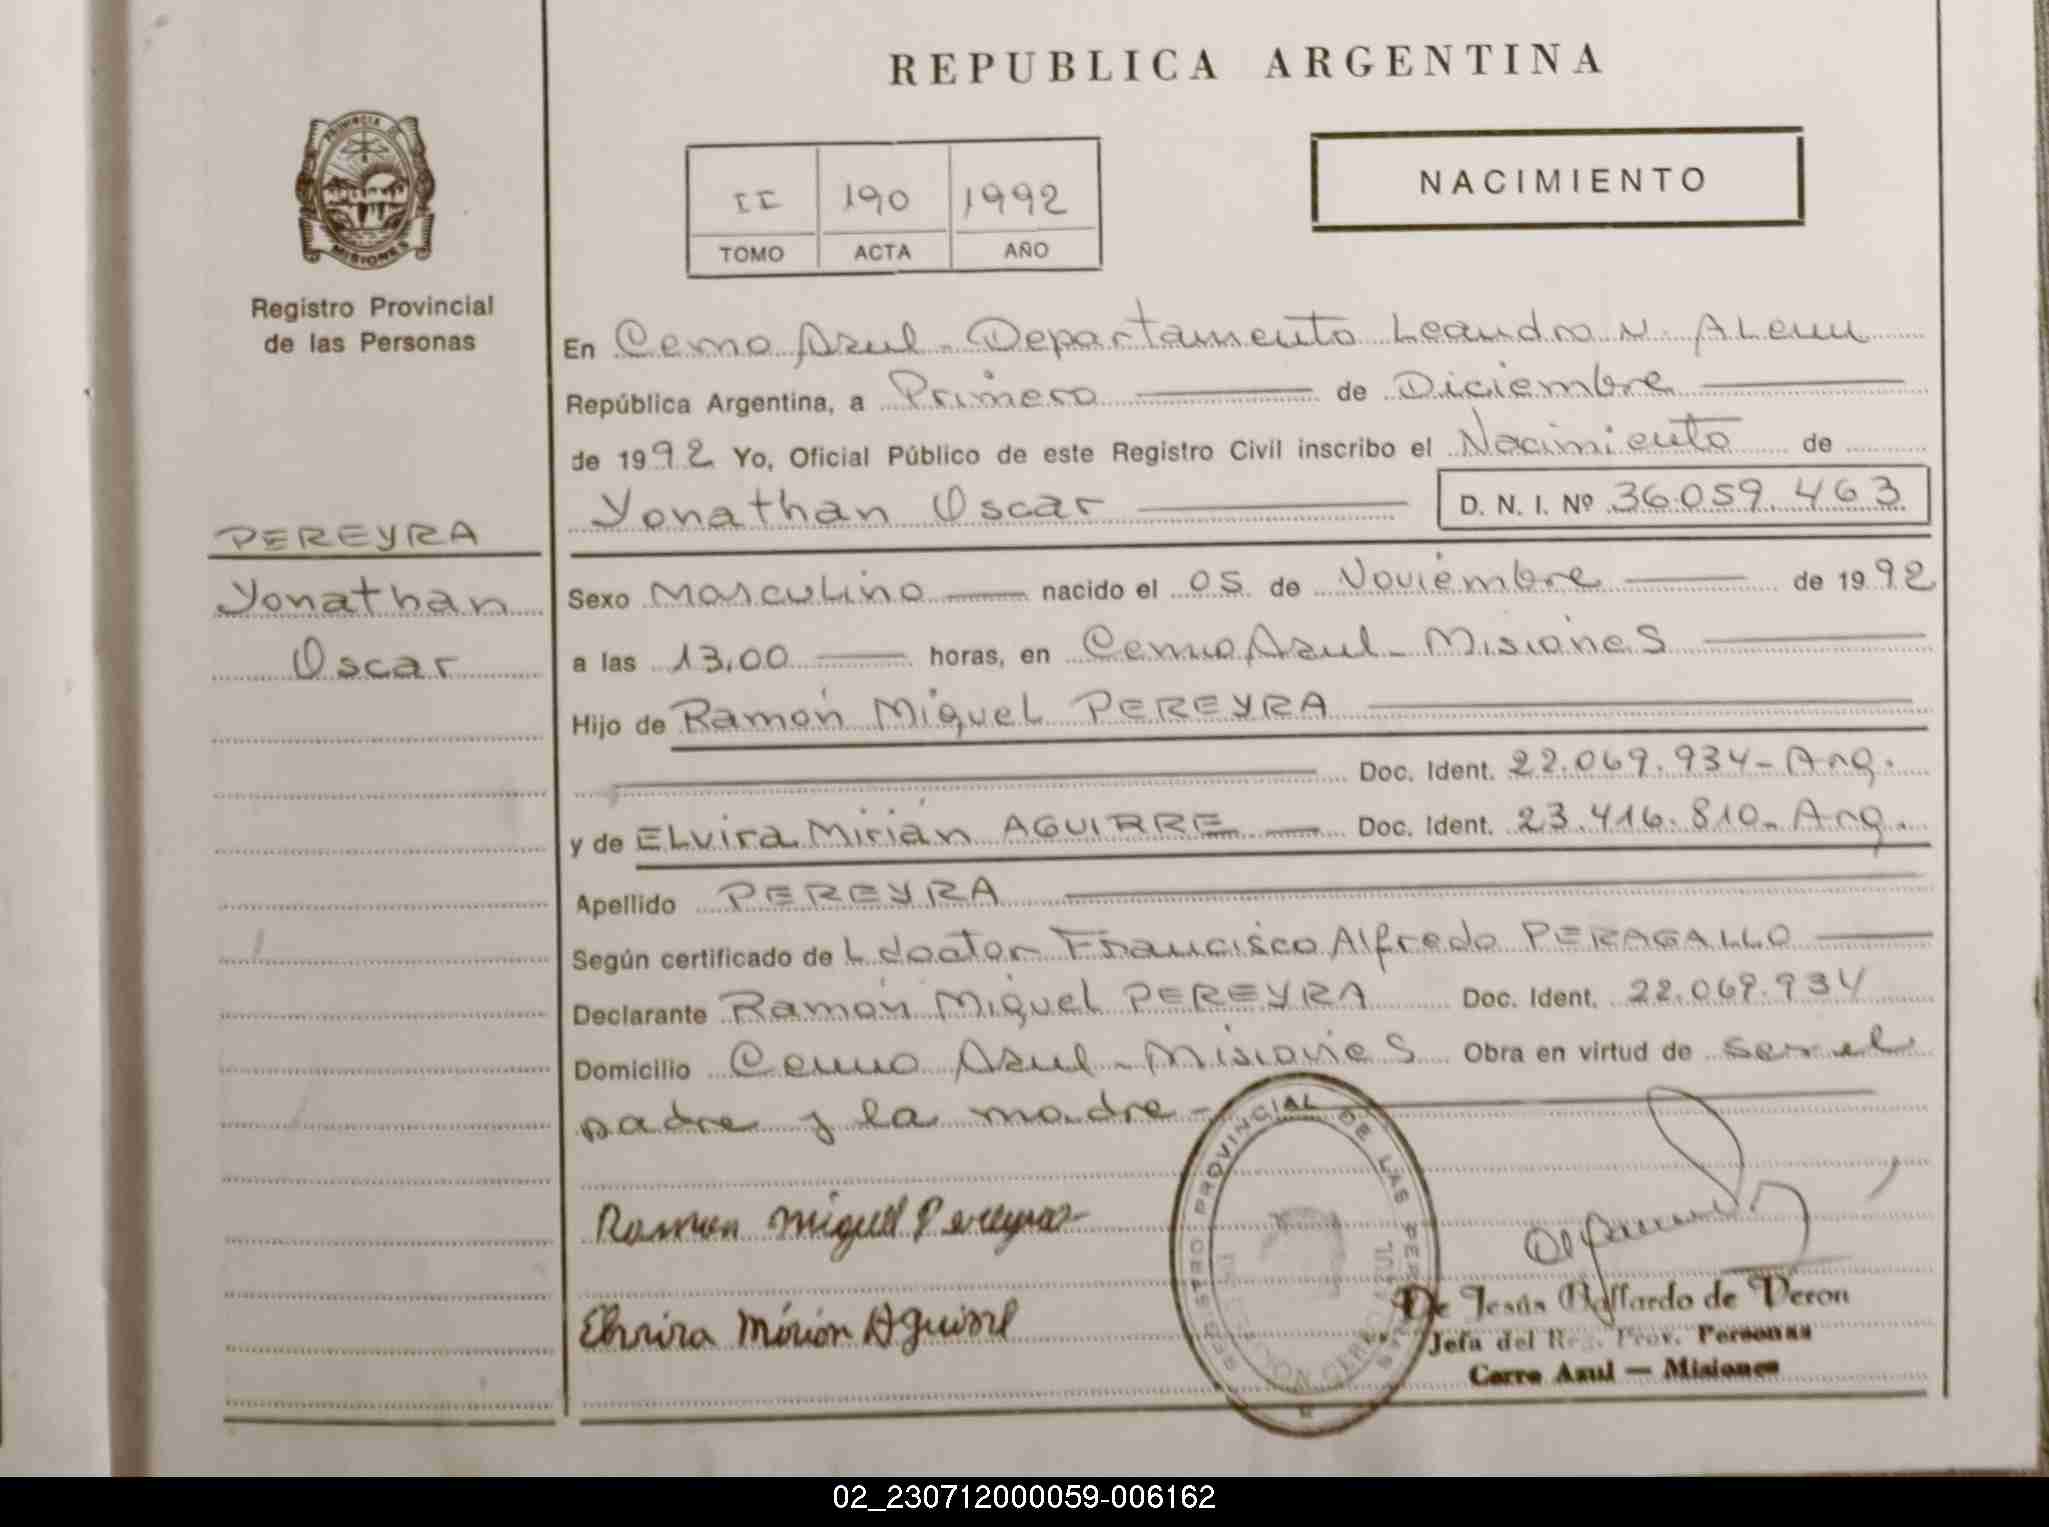 REPUBLICA ARGENTINA
PROVINCIA DE
MISIONES
Registro Provincial
de las Personas
II 190 1992
TOMO ACTA AÑO
NACIMIENTO
En Cerro Azul - Departamento Leandro N. ALem
República Argentina, a Primero de Diciembre
de 1992 Yo, Oficial Público de este Registro Civil inscribo el Nacimiento de
Yonathan Oscar D. N. I. Nº 36.059.463
PEREYRA
Yonathan
Oscar
Sexo Masculino nacido el 05 de Noviembre de 1992
a las 13,00 horas, en Cerro Azul - Misiones
Hijo de Ramón Miguel PEREYRA
Doc. Ident. 22.069.934 - Arg.
y de Elvira Mirian AGUIRRE Doc. Ident. 23.416.810 - Arg.
Apellido PEREYRA
Según certificado de L doctor Francisco Alfredo PERAGALLO
Declarante Ramón Miguel PEREYRA Doc. Ident. 22.069.934
Domicilio Cerro Azul - Misiones Obra en virtud de ser el
padre y la madre -
Ramon Miguel Pereyra
Elvira Mirian Aguirre
REGISTRO PROVINCIAL DE LAS PERSONAS
De Jesús Gallardo de Veron
Jefa del Reg. Prov. Personas
Cerro Azul — Misiones
02_230712000059-006162